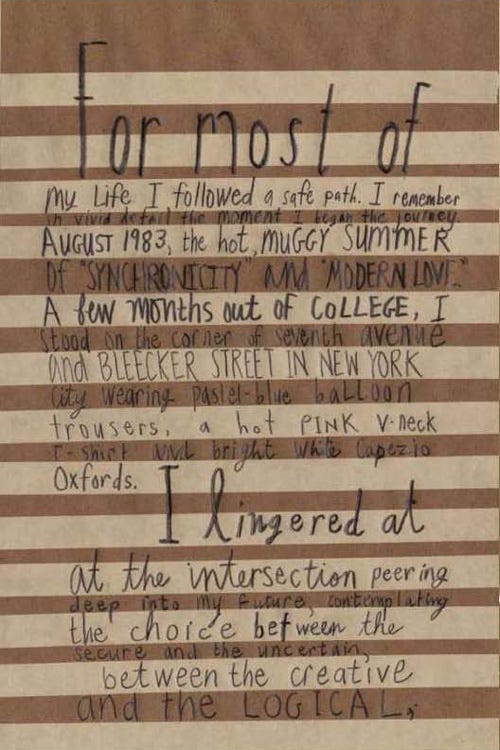 For most of
my Life I followed a safe path. I remember
in vivid detail the moment I began the journey.
AUGUST 1983, the hot, MUGGY SUMMER
OF "SYNCHRONICITY" and "MODERN LOVE."
A few months out of COLLEGE, I
stood on the corner of seventh avenue
and BLEECKER STREET IN NEW YORK
City wearing pastel-blue balloon
trousers, a hot PINK V-neck
T-shirt and bright white Capezio
Oxfords.
I lingered at
at the intersection peering
deep into my future, contemplating
the choice between the
secure and the uncertain,
between the creative
and the LOGICAL,